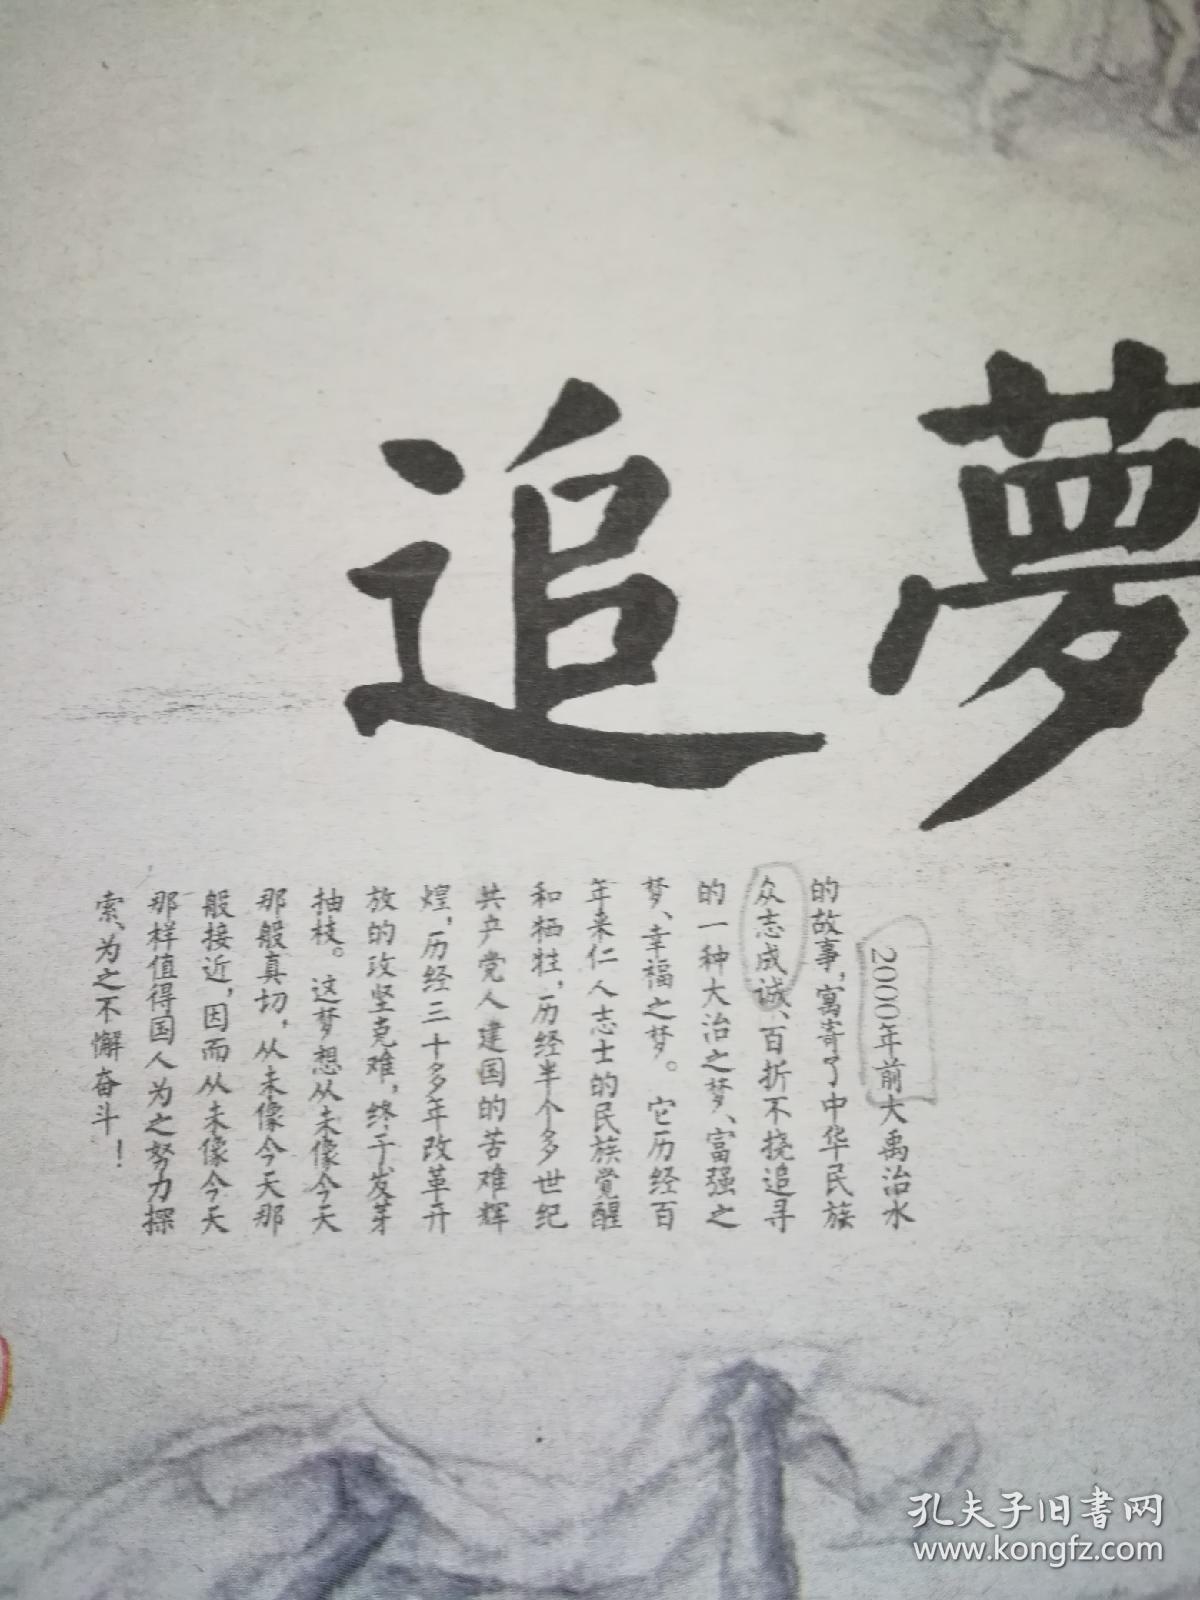 追夢
2000年前大禹治水
的故事，寓寄了中华民族
众志成诚、百折不挠追寻
的一种大治之梦、富强之
梦、幸福之梦。它历经百
年来仁人志士的民族觉醒
和牺牲，历经半个多世纪
共产党人建国的苦难辉
煌，历经三十多年改革开
放的攻坚克难，终于发芽
抽枝。这梦想从未像今天
那般真切，从未像今天那
般接近，因而从未像今天
那样值得国人为之努力探
索、为之不懈奋斗！
孔夫子旧書网
www.kongfz.com